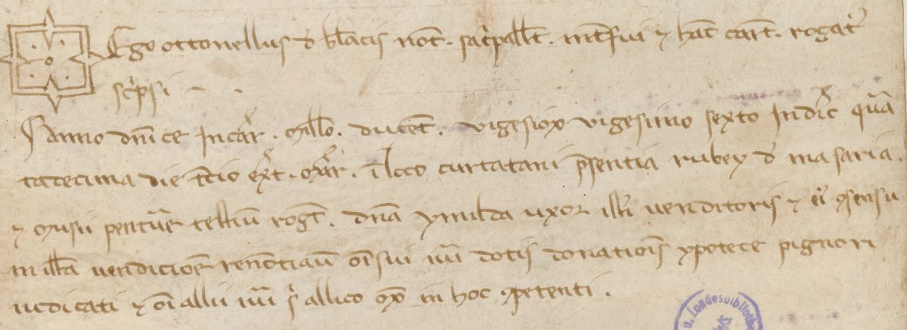 Ego ottonellus d blacis not. sac̃ pallt. int̃fui ⁊ hac̃ cart. rogat᷑
sc̃psi
Anno dn̄ice Incar̃. Mill̃o. ducet̃. vigesimo sexto Indic̃ quar
tadecima die t̃cio ex̃t. i loco curtatani p̃sentia rubey d masaria.
⁊ testiū rogt̃. dñā ymilda uxor illi᷑ venditoris ⁊ ei᷑ ꝯsensu
in illa vendicioe᷑ renōtiau᷑ oi᷑ sui iuri᷑ dotis donatiois᷑ ypotece pignori
iudicati ⁊ oi᷑ allii iuri᷑ s᷑ allico mō in hoc ꝯpetenti.
Landesbibliothek